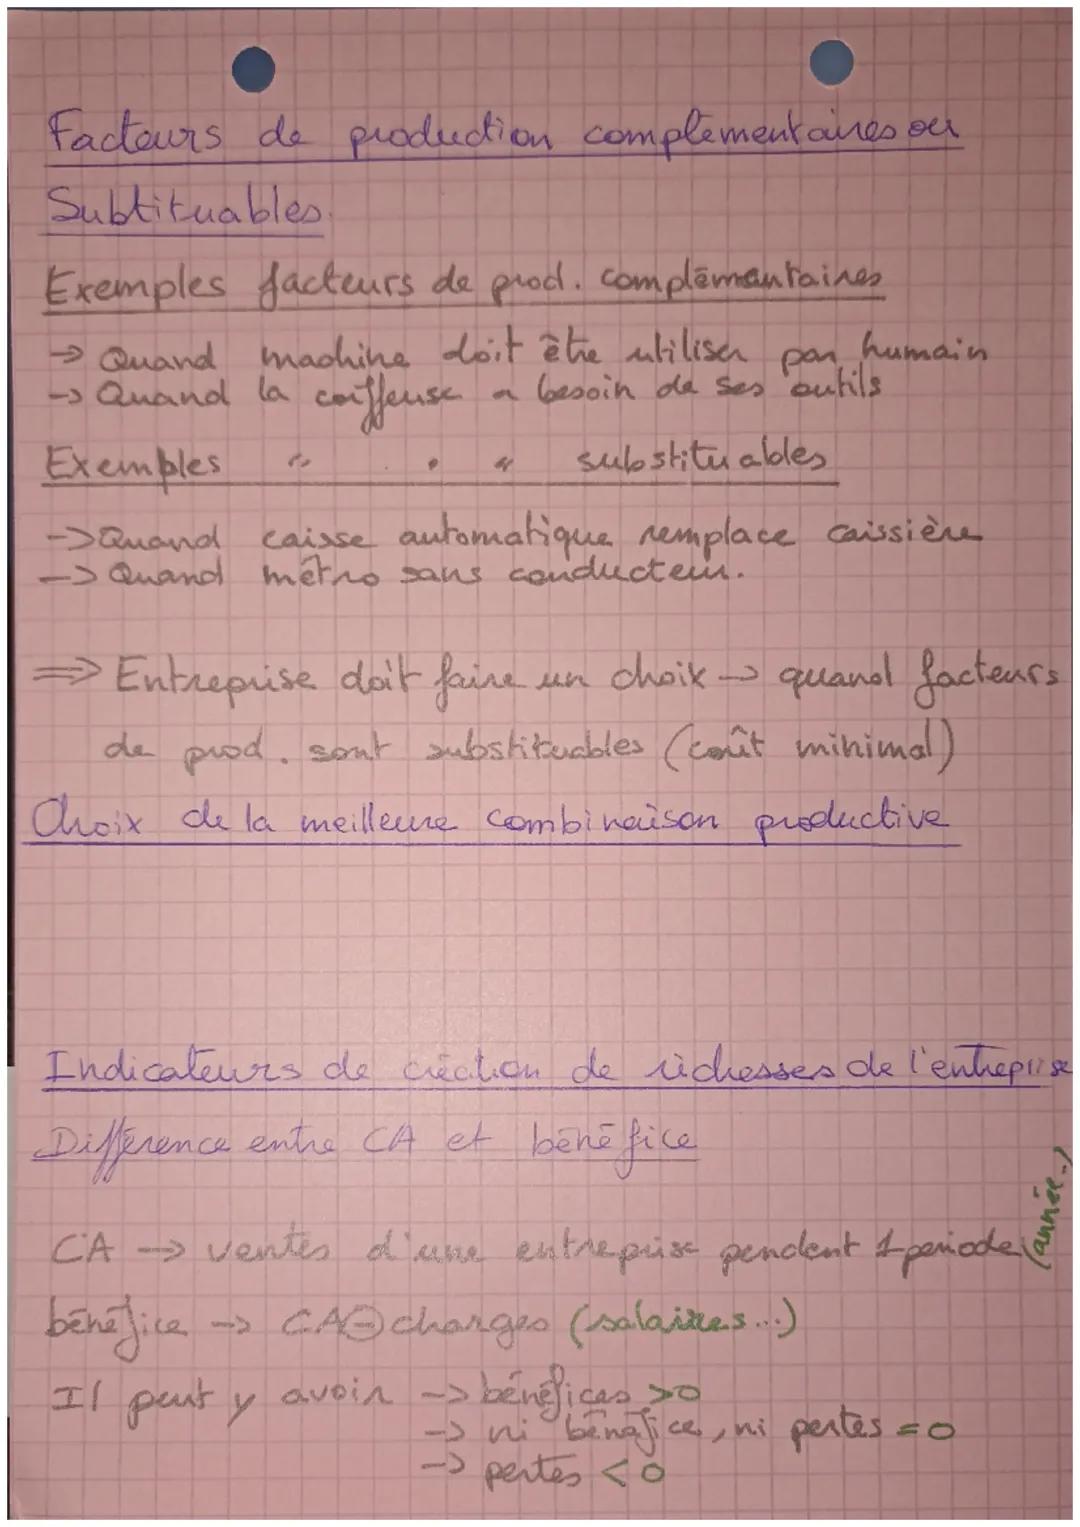 Facteurs de production complémentaires ou
Subtituables.
Exemples facteurs de prod. complémentaires
→ Quand machine doit être utiliser par humain
→ Quand la coiffeuse a besoin de ses outils
Exemples " " " substituables
→ Quand caisse automatique remplace caissière
→ Quand métro sans conducteur.
⇒ Entreprise doit faire un choix → quand facteurs
de prod. sont substituables (coût minimal)
Choix de la meilleure combinaison productive
Indicateurs de création de richesses de l'entreprise
Différence entre CA et bénéfice
CA → ventes d'une entreprise pendent 1 periode (année..)
bénéfice → CA ⊖ charges (salaires...)
Il peut y avoir → bénéfices >0
→ ni bénéfice, ni pertes = 0
→ pertes < 0